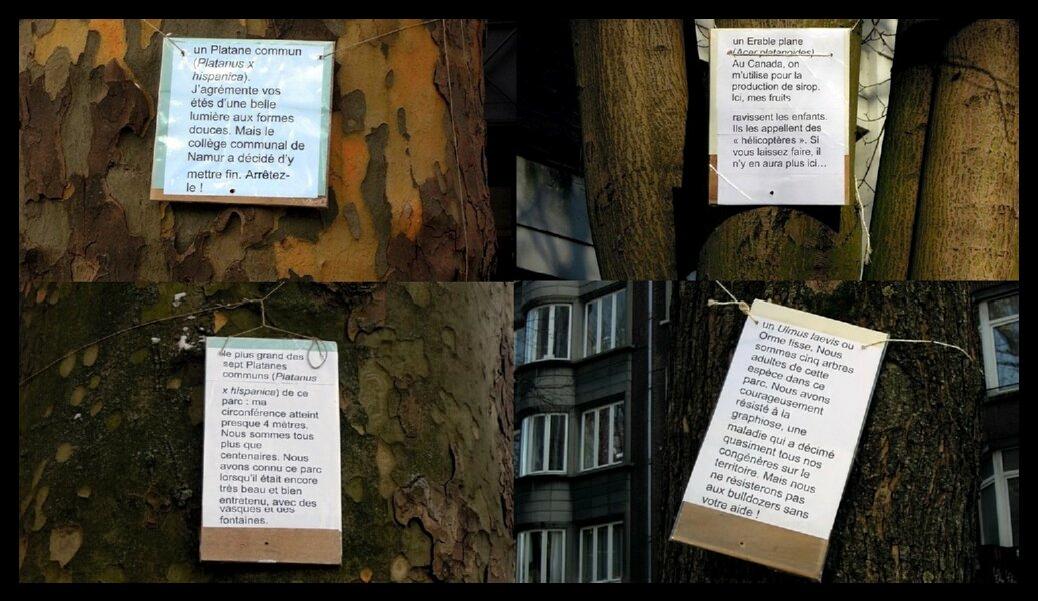 un Platane commun
(Platanus x
hispanica).
J'agrémente vos
étés d'une belle
lumière aux formes
douces. Mais le
collège communal de
Namur a décidé d'y
mettre fin. Arrêtez-
le !
un Erable plane
(Acer platanoides)
Au Canada, on
m'utilise pour la
production de sirop.
Ici, mes fruits
ravissent les enfants.
Ils les appellent des
« hélicoptères ». Si
vous laissez faire, il
n'y en aura plus ici...
le plus grand des
sept Platanes
communs (Platanus
x hispanica) de ce
parc : ma
circonférence atteint
presque 4 mètres.
Nous sommes tous
plus que
centenaires. Nous
avons connu ce parc
lorsqu'il était encore
très beau et bien
entretenu, avec des
vasques et des
fontaines.
un Ulmus laevis ou
Orme lisse. Nous
sommes cinq arbres
adultes de cette
espèce dans ce
parc. Nous avons
courageusement
résisté à la
graphiose, une
maladie qui a décimé
quasiment tous nos
congénères sur le
territoire. Mais nous
ne résisterons pas
aux bulldozers sans
votre aide !